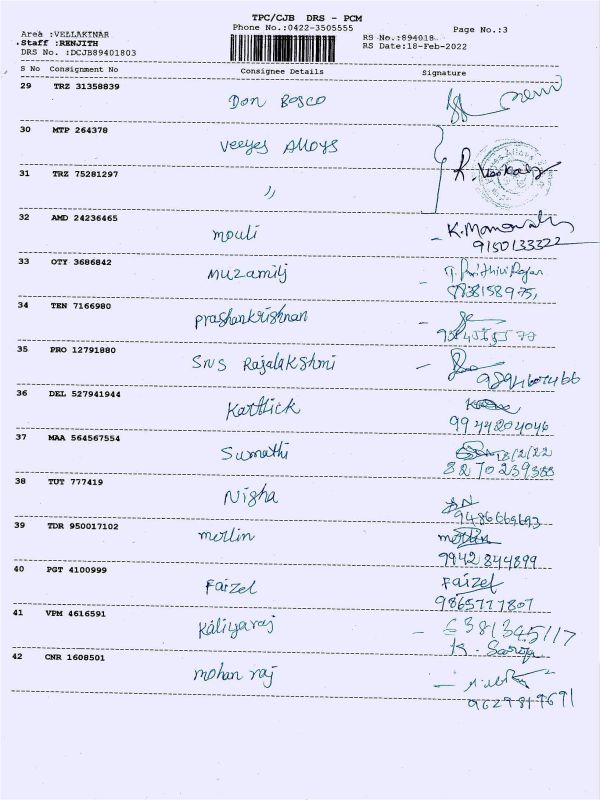 TPC/CJB DRS - PCM
Phone No.:0422-3505555
Page No.:3
Area :VELLAKINAR
Staff :RENJITH
DRS No. :DCJB89401803
RS No.:894018
RS Date:18-Feb-2022
S No Consignment No Consignee Details Signature
29 TRZ 31358839
Don Bosco
30 MTP 264378
Veeyes Alloys
31 TRZ 75281297
"
32 AMD 24236465
mouli - K.Manoval
9150133322
33 OTY 3686842
Muzamilj -
34 TEN 7166980
prashankrishnan -
35 PRO 12791880
SNS Rajalakshmi -
9894607466
36 DEL 527941944
Karthick
9944204046
37 MAA 564567554
Sumathi 18/2/22
8270239388
38 TUT 777419
Nisha
9486669693
39 TDR 950017102
merlin merlin
9942844899
40 PGT 4100999
Faizel Faizel
9865777807
41 VPM 4616591
Kaliyaraj - 6381345117
K. Saroja
42 CNR 1608501
mohan raj -
9629819691